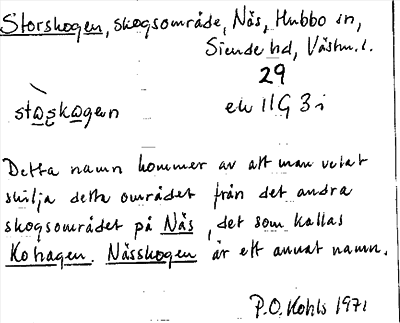 Storskogen, skogsområde, Näs, Hubbo sn,
Siende hd, Västm. l.
29
stωskωgen ek 11G 3i
Detta namn kommer av att man velat
skilja detta området från det andra
skogsområdet på Näs, det som kallas
Kohagen. Nässkogen är ett annat namn.
P.O. Kohls 1971